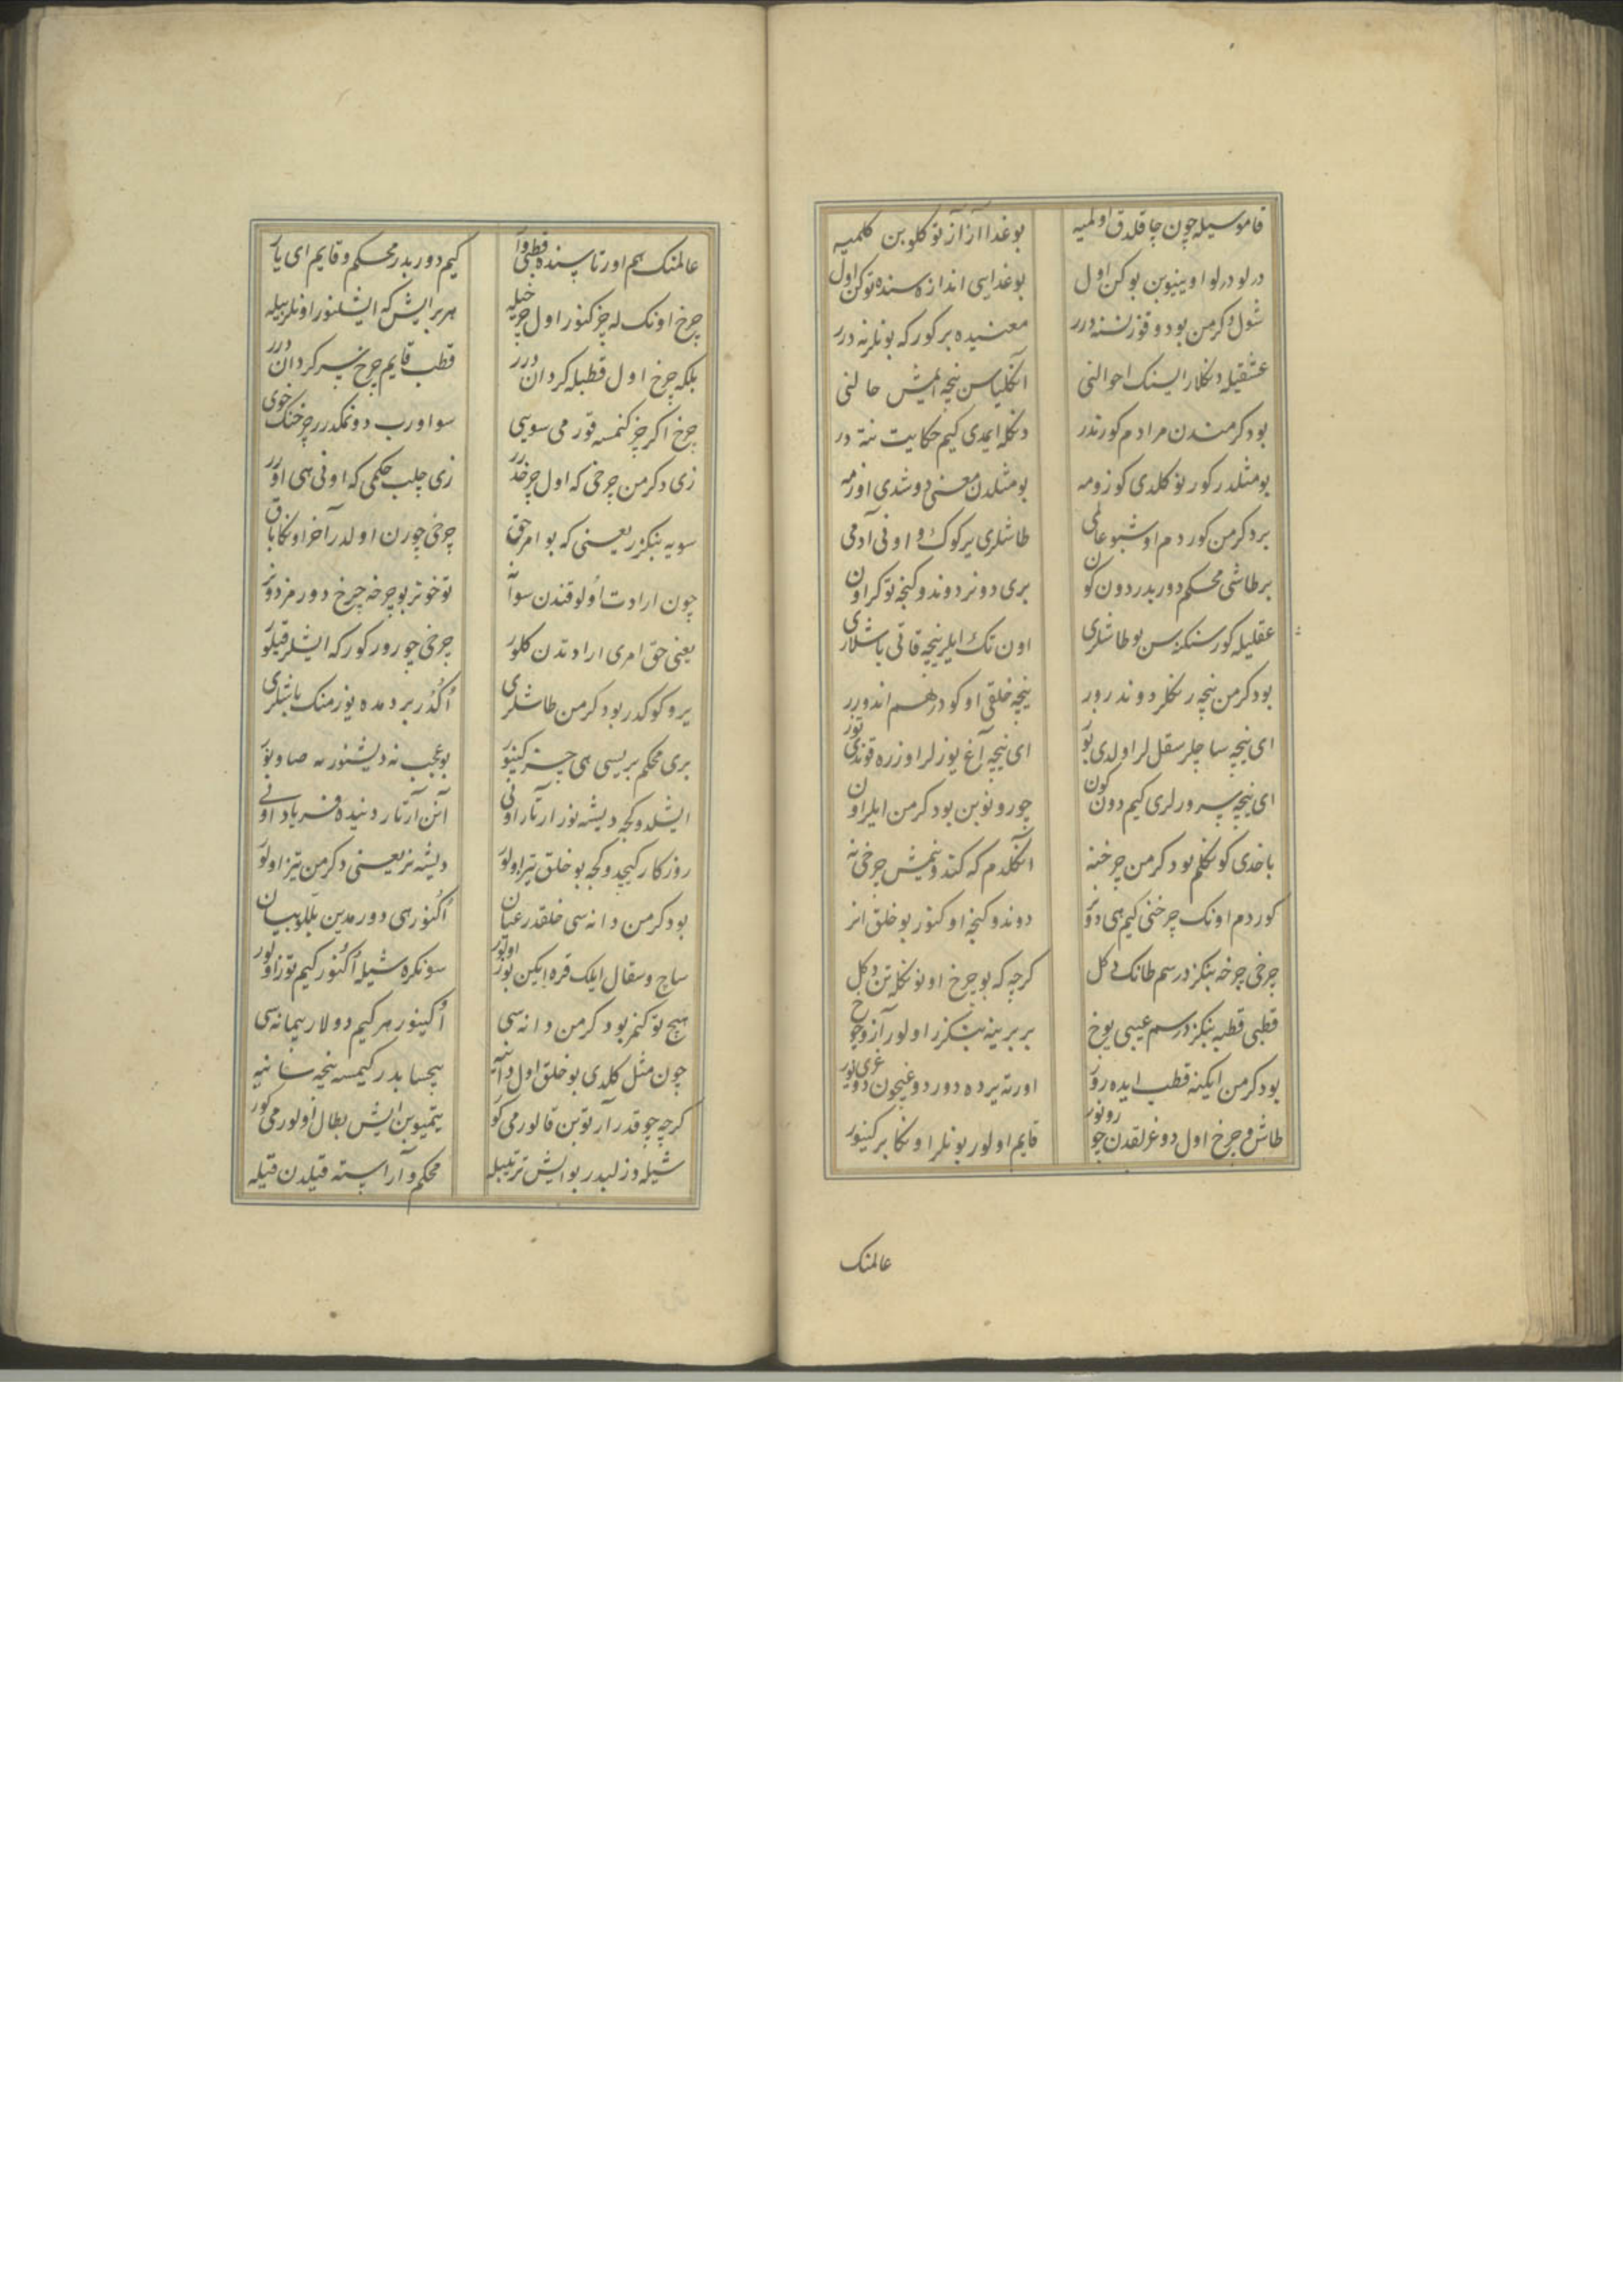 قاموسیله چون چاقلدق اولمیه بوغدا آز آز توکلوبن کلمیه
درلو درلو اوینیوبن بوکن اول بوغدایی اندازه سنده توکن اول
شول دکرمن بودوقوز نسنه درر معنیده بر کور که بونلر نه درر
عشقیله دنکلار ایسنک احوالنی انکلیاسن نیجه ایمش حالنی
بودکرمندن مرادم کورندر دنکله ایمدی کیم حکایت ننه در
بو مثلدر کورنو کلدی کوزومه بو مثلدن معنی دوشدی اوزمه
بر دکرمن کوردم اوشبو عالمی طاشلری یر کوک و اونی آدمی
بر طاشی محکم دوربدر دون کون بری دونر دوندوکنجه توکر اون
عقلیله کورسنکز سن بو طاشلری اون تک ایلر نیجه قاتی باشلاری
بودکرمن نیجه رنکلر دوندرور نیجه خلقی اوکودر هم اندورر
ای نیجه ساچلر سقل لر اولدی بوز ای نیجه آغ یوزلر اوزره قوندی توز
ای نیجه سرورلری کیم دون کون چورونوبن بودکرمن ایلر اون
باخدی کونکلم بودکرمن چرخنه انکلدم که کندونمیش چرخی نه
کوردم اونک چرخنی کیم هی دونر دوندوکنجه اوکنور بو خلق انر
چرخی چرخه بنکزدرسم طانک دکل کرچه که بو چرخ اونونکله تن دکل
قطبی قطبه بنکزدرسم عیبی یوخ بر برینه بنکزر اولور آز و چوخ
بودکرمن ایکنه قطب ایده رور اورته یرده دوردوغیچون دوغری یور
طاش و چرخ اول دوغرلقدن چورونور قایم اولور بونلر اونکا برکینور
عالمنک
عالمنک هم اورتاسنده قطبی وار کیم دوربدر محکم و قایم ای یار
چرخ اونک له چزکنور اول چرخیله هر بر ایش که ایشلنور اونلر بیله
بلکه چرخ اول قطبله کردان درر قطب قایم چرخ سرکردان درر
چرخ اکر چزکنمسه قور می سویی سو اورب دونمکدرر چرخنک خوی
زی دکرمن چرخی که اول چرخدرر زی چلب حکمی که اونی هی اورر
سویه بنکزر یعنی که بو امر حق چرخی چورن اولدر آخر اونکا باق
چون ارادت اولوقندن سو آنه توخونر بو چرخه چرخ دورمز دونر
یعنی حق امری ارادتدن کلور چرخی چورور کور که ایشلر قیلور
یر و کوکدر بودکرمن طاشلری اکدر بر دمده یوزمنک باشلری
بری محکم بریسی هی چزکینور بو عجب نه دیشنور نه صاونور
ایشلدوکجه دیشه نور ارتار اونی آنن آرتار دنیده فریاد اونی
روزکار کیچدوکجه بو خلق تیز اولور دیشه نر یعنی دکرمن تیز اولور
بودکرمن دانه سی خلقدر عیان اکنور هی دورمدین بللو بیان
ساچ و سقال ایلک قره ایکین بوز اولور سونکره شیله اکنور کیم توز اولور
هیچ توکنمز بودکرمن دانه سی اکینور هر کیم دولار پیمانه سی
چون مثل کلدی بو خلق اول دانیه بیحسابدر کیمسه نیجه سانیه
کرچه چوقدر آرتوبن قالور می کور یتمیوبن ایش بطال اولور می کور
شیله دزلبدر بو ایش ترتیبله محکم و آراسته قیلدن قیله